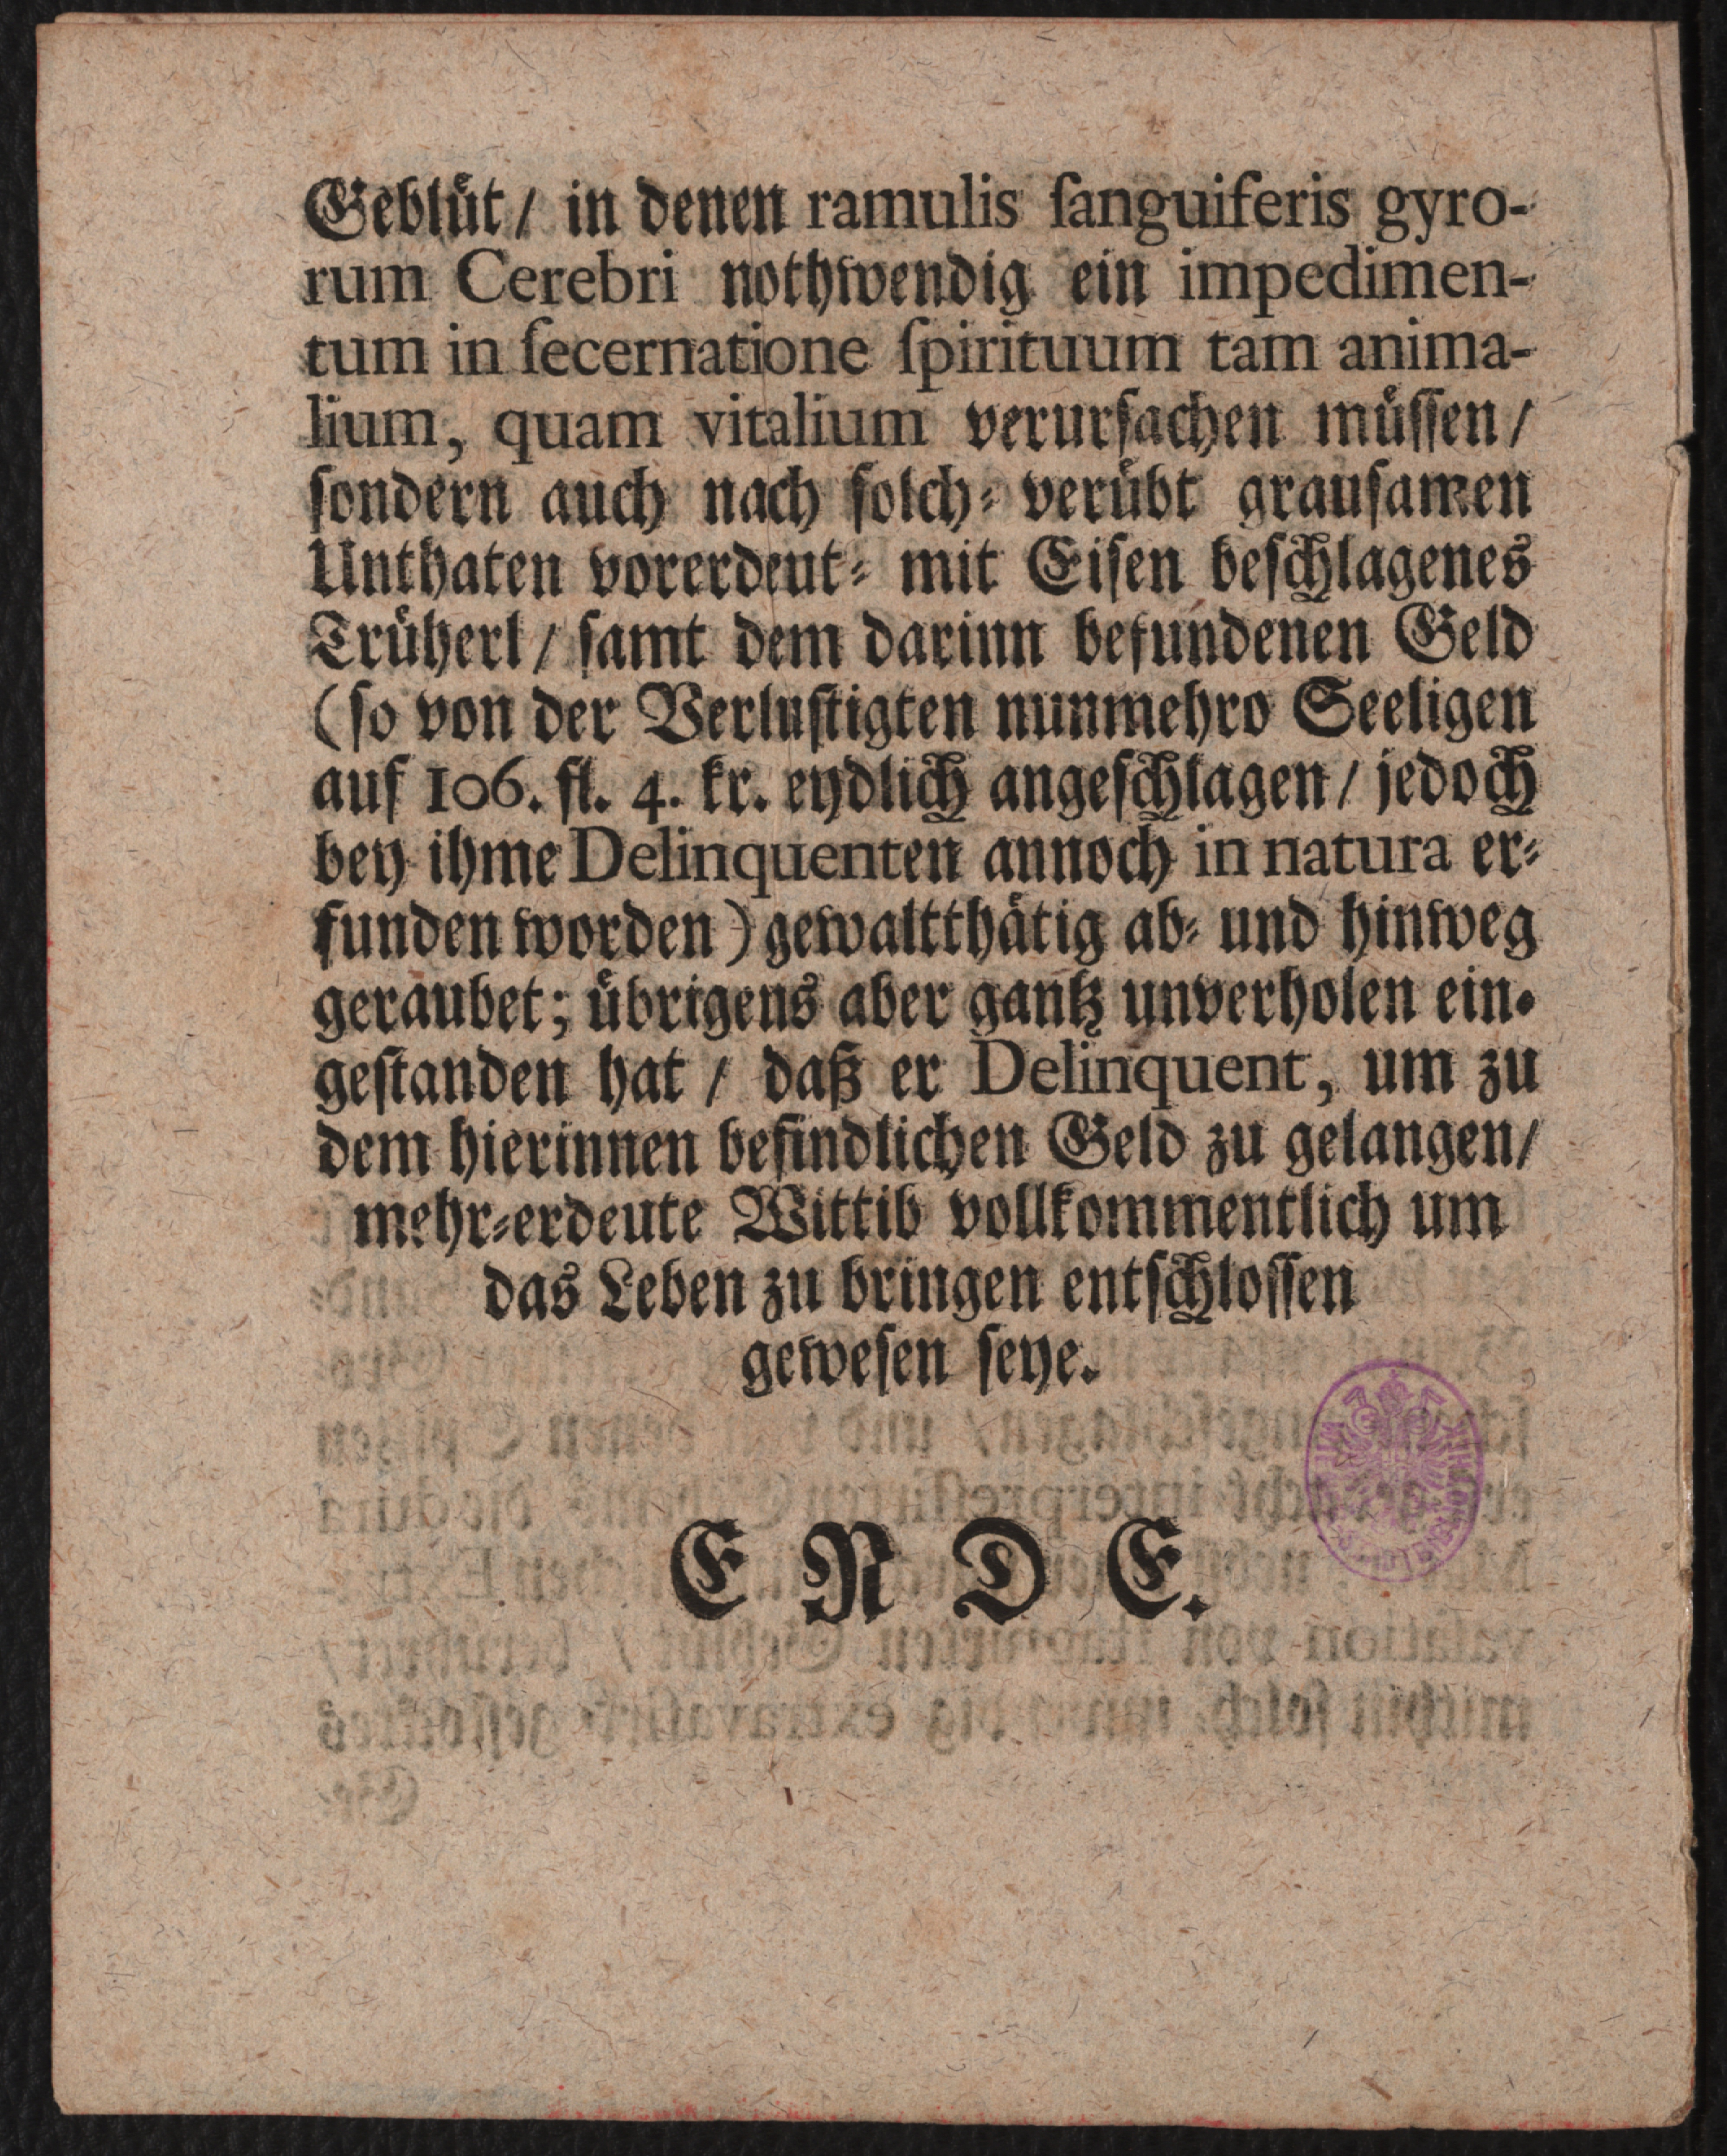 Geblüt / in denen ramulis ſanguiferis gyro-
rum Cerebri nothwendig ein impedimen-
tum in ſecernatione ſpirituum tam anima-
lium, quam vitalium verurſachen müſſen /
ſondern auch nach ſolch- verübt grauſamen
Unthaten vorerdeut- mit Eiſen beſchlagenes
Trüherl / ſamt dem darinn befundenen Geld
(ſo von der Verluſtigten nunmehro Seeligen
auf 106. fl. 4. kr. eydlich angeſchlagen / jedoch
bey ihme Delinquenten annoch in natura er-
funden worden) gewaltthätig ab- und hinweg
geraubet; übrigens aber gantz unverholen ein-
geſtanden hat / daß er Delinquent, um zu
dem hierinnen befindlichen Geld zu gelangen /
mehr-erdeute Wittib vollkommentlich um
das Leben zu bringen entſchloſſen
geweſen ſeye.
ENDE.